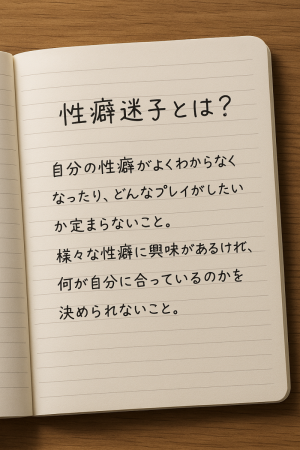 性癖迷子とは？
自分の性癖がよくわからなく
なったり、どんなプレイがしたい
か定まらないこと。
様々な性癖に興味があるけれ、
何が自分に合っているのかを
決められないこと。